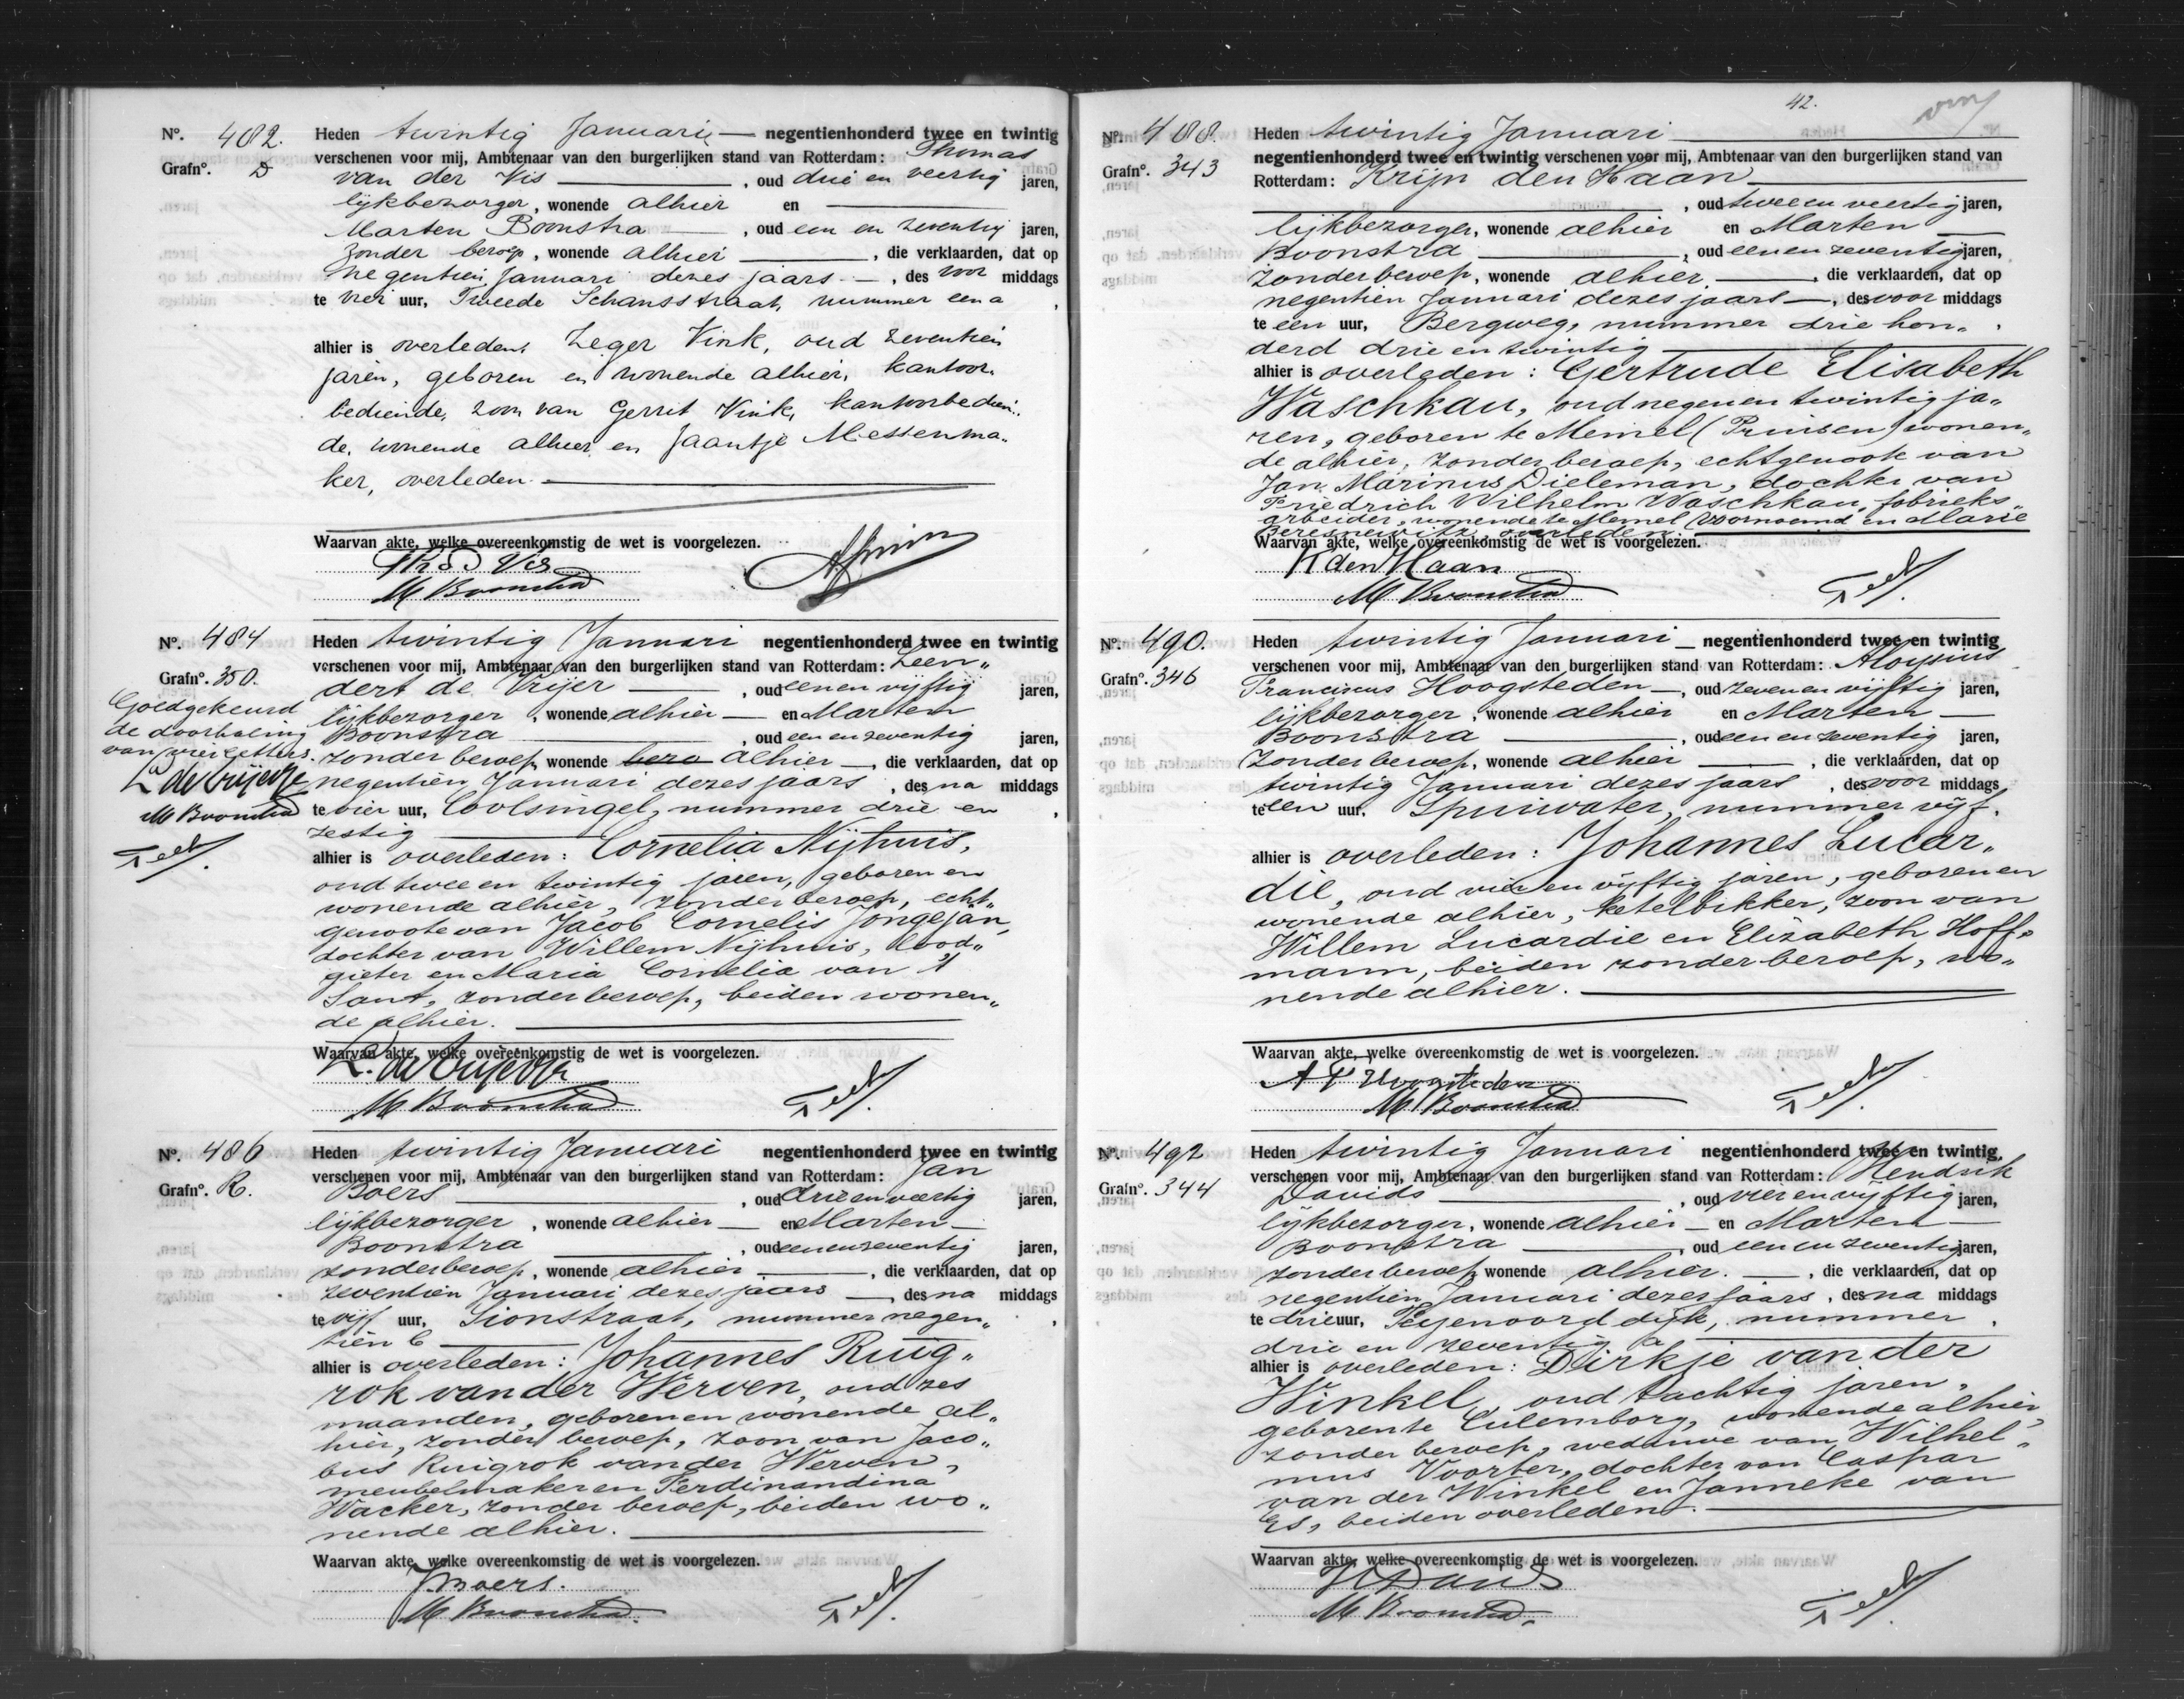 Nº. 482. Heden twintig Januari — negentienhonderd twee en twintig
Grafnº. D verschenen voor mij, Ambtenaar van den burgerlijken stand van Rotterdam: Thomas
van der Vis —, oud drie en veertig jaren,
lijkbezorger, wonende alhier en —
Marten Boonstra —, oud een en zeventig jaren,
zonder beroep, wonende alhier —, die verklaarden, dat op
negentien Januari dezes jaars —, des voor middags
te vier uur, Tweede Schansstraat, nummer een a,
alhier is overleden: Zeger Vink, oud zeventien
jaren, geboren en wonende alhier, kantoor-
bediende, zoon van Gerrit Vink, kantoorbedien-
de, wonende alhier en Jaantje Messenma-
ker, overleden. —
Waarvan akte, welke overeenkomstig de wet is voorgelezen.
Th v d Vis
M Boonstra
Nº. 484 Heden twintig Januari negentienhonderd twee en twintig
Grafnº. 350. verschenen voor mij, Ambtenaar van den burgerlijken stand van Rotterdam: Leen„
dert de Vrijer —, oud een en vijftig jaren,
lijkbezorger, wonende alhier — en Marten
Boonstra —, oud een en zeventig jaren,
zonder beroep, wonende bero alhier —, die verklaarden, dat op
negentien Januari dezes jaars, des na middags
te vier uur, Coolsingel, nummer drie en,
zestig —
alhier is overleden: Cornelia Nijhuis,
oud twee en twintig jaren, geboren en
wonende alhier, zonder beroep, echt„
genoote van Jacob Cornelis Jongejan,
dochter van Willem Nijhuis, lood„
gieter en Maria Cornelia van 't
Sant, zonder beroep, beiden wonen„
de alhier. —
Goedgekeurd
de doorhaling
van vier letters.
L de Vrijer
M Boonstra
Waarvan akte, welke overeenkomstig de wet is voorgelezen.
L. de Vrijer
M Boonstra
Nº. 486 Heden twintig Januari negentienhonderd twee en twintig
Grafnº. R. verschenen voor mij, Ambtenaar van den burgerlijken stand van Rotterdam: Jan
Boers —, oud drie en veertig jaren,
lijkbezorger, wonende alhier — en Marten —
Boonstra —, oud een en zeventig jaren,
zonder beroep, wonende alhier —, die verklaarden, dat op
zeventien Januari dezes jaars —, des na middags
te vijf uur, Sionstraat, nummer negen„,
tien b —
alhier is overleden: Johannes Ruig„
rok van der Werven, oud zes
maanden, geboren en wonende al„
hier, zonder beroep, zoon van Jaco„
bus Ruigrok van der Werven,
meubelmaker en Ferdinandina
Wacker, zonder beroep, beiden wo„
nende alhier. —
Waarvan akte, welke overeenkomstig de wet is voorgelezen.
J Boers.
M Boonstra
42.
Nº. 488. Heden twintig Januari —
Grafnº. 343 negentienhonderd twee en twintig verschenen voor mij, Ambtenaar van den burgerlijken stand van
Rotterdam: Krijn den Haan —
—, oud twee en veertig jaren,
lijkbezorger, wonende alhier en Marten —
Boonstra —, oud een en zeventig jaren,
zonder beroep, wonende alhier —, die verklaarden, dat op
negentien Januari dezes jaars —, des voor middags
te een uur, Bergweg, nummer drie hon„,
derd drie en twintig —
alhier is overleden: Gertrude Elisabeth
Waschkau, oud negen en twintig ja„
ren, geboren te Memel (Pruisen) wonen„
de alhier, zonder beroep, echtgenoote van
Jan Marinus Dieleman, dochter van
Friedrich Wilhelm Waschkau, fabrieks„
arbeider, wonende te Memel voornoemd en Marie
overleden.
Waarvan akte, welke overeenkomstig de wet is voorgelezen.
K den Haan
M Boonstra
Nº. 490. Heden twintig Januari — negentienhonderd twee en twintig
Grafnº. 346 verschenen voor mij, Ambtenaar van den burgerlijken stand van Rotterdam: Aloysius
Franciscus Hoogsteden —, oud zeven en vijftig jaren,
lijkbezorger, wonende alhier en Marten —
Boonstra —, oud een en zeventig jaren,
zonder beroep, wonende alhier —, die verklaarden, dat op
twintig Januari dezes jaars, des voor middags
te een uur, Spuiwater, nummer vijf,
alhier is overleden: Johannes Lucar„
die, oud vier en vijftig jaren, geboren en
wonende alhier, ketelbikker, zoon van
Willem Lucardie en Elizabeth Hoff„
mann, beiden zonder beroep, wo„
nende alhier. —
Waarvan akte, welke overeenkomstig de wet is voorgelezen.
A F Hoogsteden
M Boonstra
Nº. 492 Heden twintig Januari negentienhonderd twee en twintig
Grafnº. 344 verschenen voor mij, Ambtenaar van den burgerlijken stand van Rotterdam: Hendrik
Davids —, oud vier en vijftig jaren,
lijkbezorger, wonende alhier — en Marten —
Boonstra —, oud een en zeventig jaren,
zonder beroep, wonende alhier. —, die verklaarden, dat op
negentien Januari dezes jaars, des na middags
te drie uur, Feyenoorddijk, nummer,
drie en zeventig a —
alhier is overleden: Dirkje van der
Winkel, oud tachtig jaren,
geboren te Culemborg, wonende alhier,
zonder beroep, weduwe van Wilhel„
mus Voorter, dochter van Caspar
van der Winkel en Janneke van
Es, beiden overleden. —
Waarvan akte, welke overeenkomstig de wet is voorgelezen.
H Davids
M Boonstra